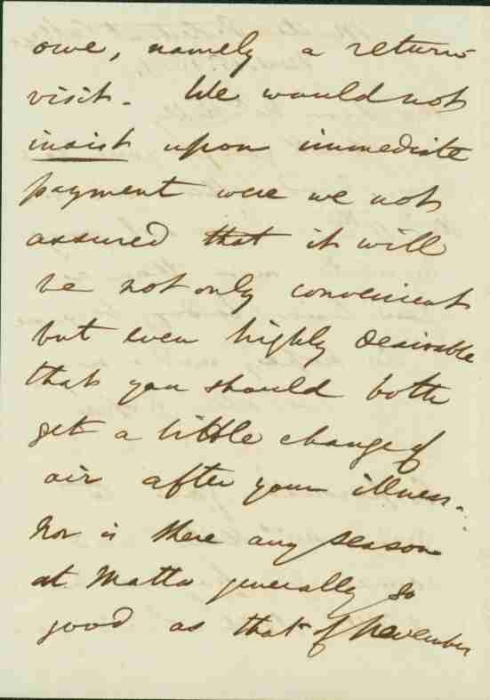 owe, namely a return
visit. We would not
insist upon immediate
payment were we not
assured that it will
be not only convenient
but even highly desirable
that you should both
get a little change of
air after your illness.
Nor is there any season
at Matta generally so
good as that of November